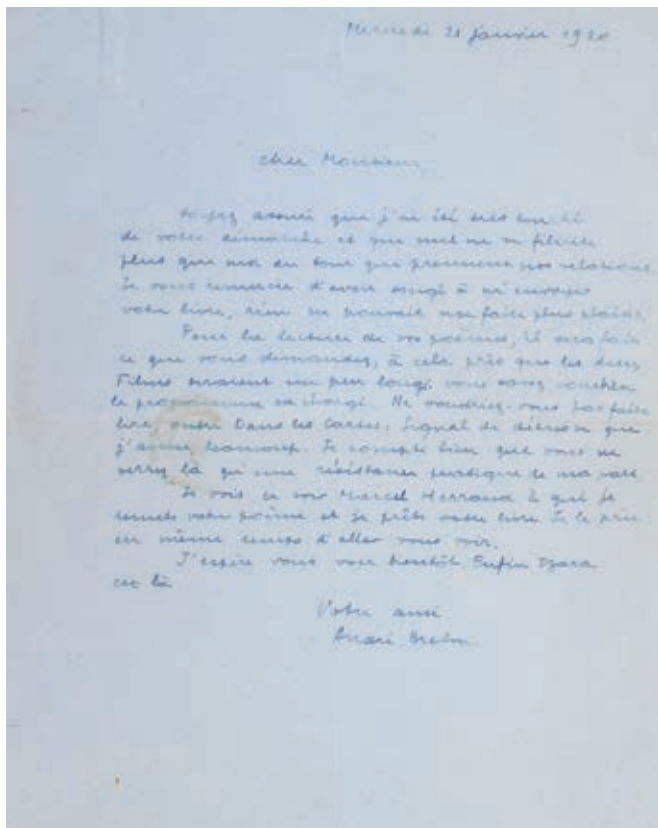 Mercredi 21 janvier 1920
Cher Monsieur
Soyez assuré que j'ai été très touché
de votre démarche et que nul ne se félicite
plus que moi du tour que prennent nos relations.
Je vous remercie d'avoir songé à m'envoyer
votre livre, rien ne pouvait me faire plus plaisir.
Pour la lecture de vos poèmes, il sera fait
ce que vous demandez, à cela près que les deux
Films seraient un peu longs vous savez combien
le programme est chargé. Ne voudriez-vous pas faire
lire, outre Dans les Cartes: Signal de détresse que
j'aime beaucoup. Je compte bien que vous ne
verrez là qu'une résistance pratique de ma part.
Je vois ce soir Marcel Herrand à qui je
remets votre poème et je prête votre livre. Je le prie
en même temps d'aller vous voir.
J'espère vous voir bientôt Enfin Tzara
est là
Votre ami
André Breton